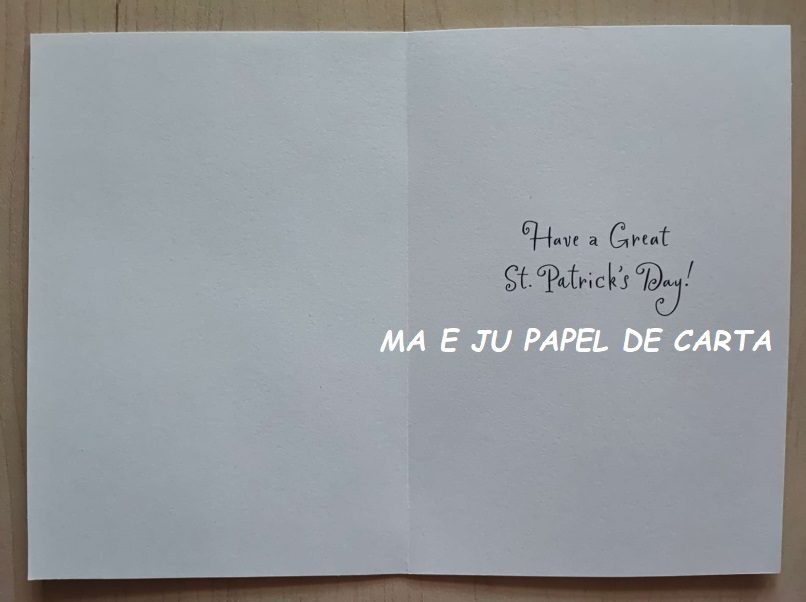 Have a Great
St. Patrick's Day!
MA E JU PAPEL DE CARTA